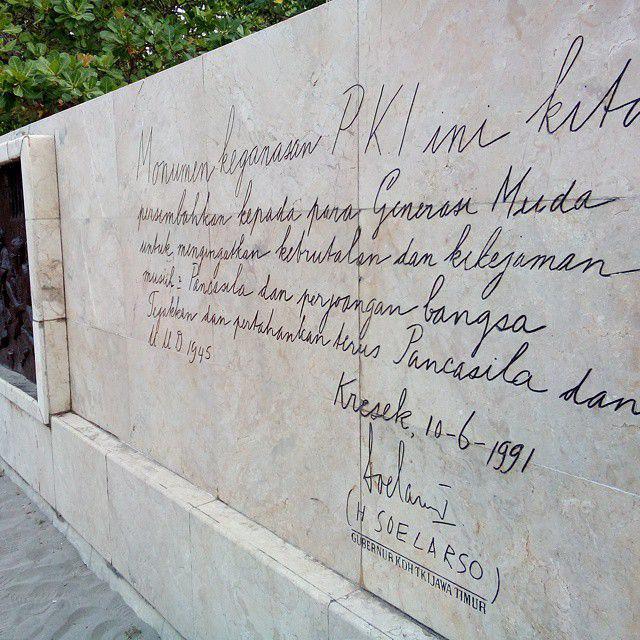 Monumen keganasan PKI ini kita
persembahkan kepada para Generasi Muda
untuk mengingatkan kebrutalan dan kekejaman
musuh2 Pancasila dan perjoangan bangsa
Tegakkan dan pertahankan terus Pancasila dan
UUD 1945
Kresek, 10-6-1991
(H SOELARSO)
GUBERNUR KDH TK I JAWA TIMUR